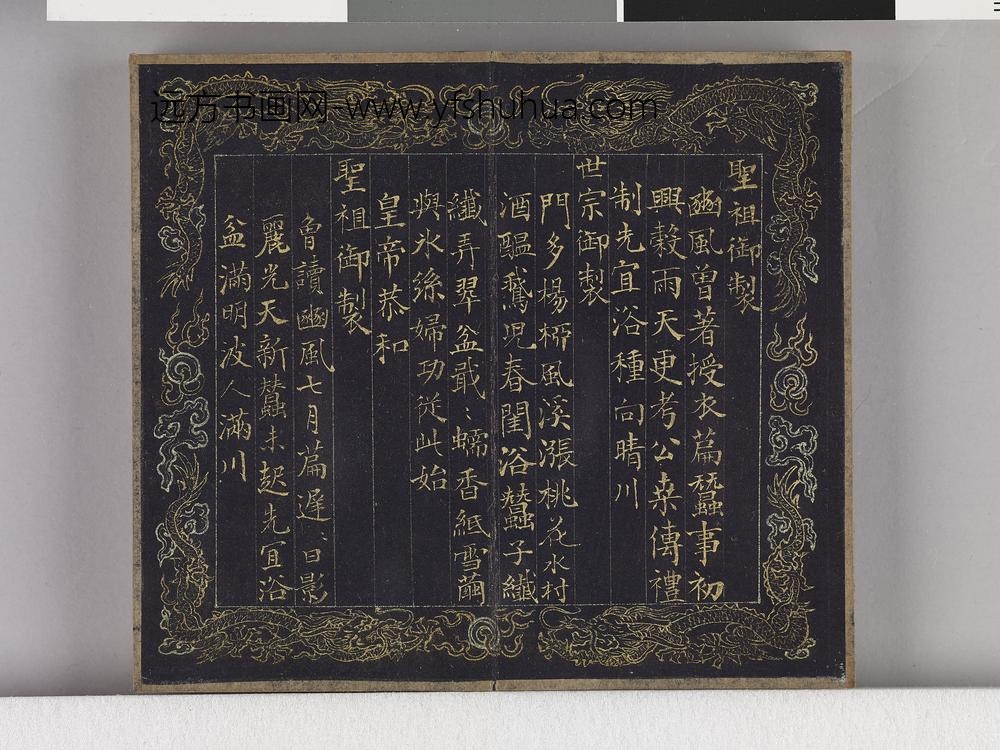 远方书画网 www.yfshuhua.com
聖祖御製
豳風曽著授衣篇蠶事初
興穀雨天更考公桒傳禮
制先宜浴種向晴川
世宗御製
門多楊栁風溪漲桃花水村
酒醖鵞児春閨浴蠶子纎
纎弄翠盆戢〻蠕香紙雪繭
與氷絲婦功従此始
皇帝恭和
聖祖御製
魯讀豳風七月篇遲〻日影
麗光天新蠶未起先宜浴
盆滿明波人滿川